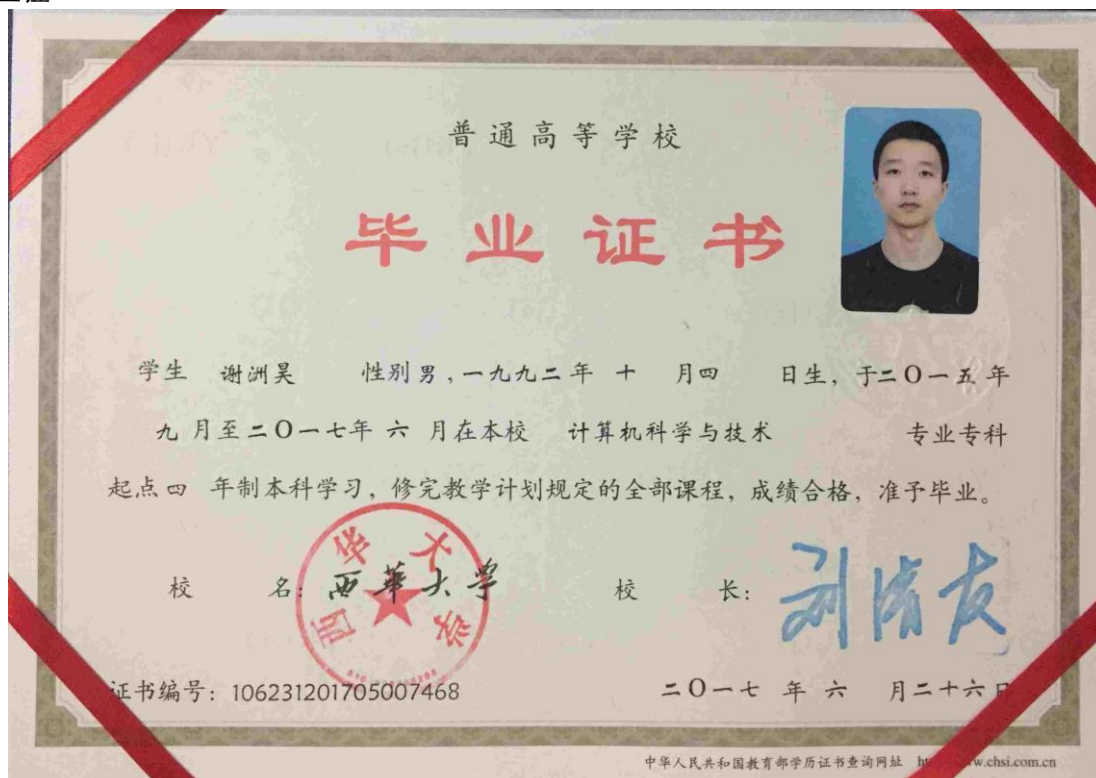 普通高等学校
毕业证书
学生 谢洲昊 性别男,一九九二年 十 月四 日生,于二〇一五年
九 月至二〇一七年 六 月在本校 计算机科学与技术 专业专科
起点四 年制本科学习,修完教学计划规定的全部课程,成绩合格,准予毕业。
校 名: 西華大学
西华大学
校 长: 刘清友
证书编号:106231201705007468
二〇一七 年 六 月二十六日
中华人民共和国教育部学历证书查询网址 w.chsi.com.cn